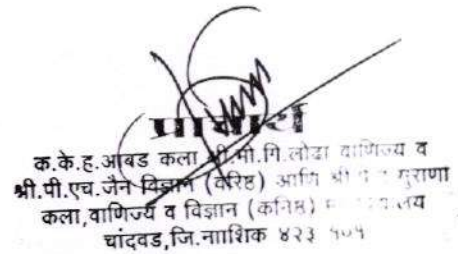 प्राचार्य
क.के.ह.आबड कला श्री.मो.गि.लोढा वाणिज्य व
श्री.पी.एच.जैन विज्ञान (वरिष्ठ) आणि श्री
कला,वाणिज्य व विज्ञान (कनिष्ठ)
चांदवड,जि.नाशिक ४२३